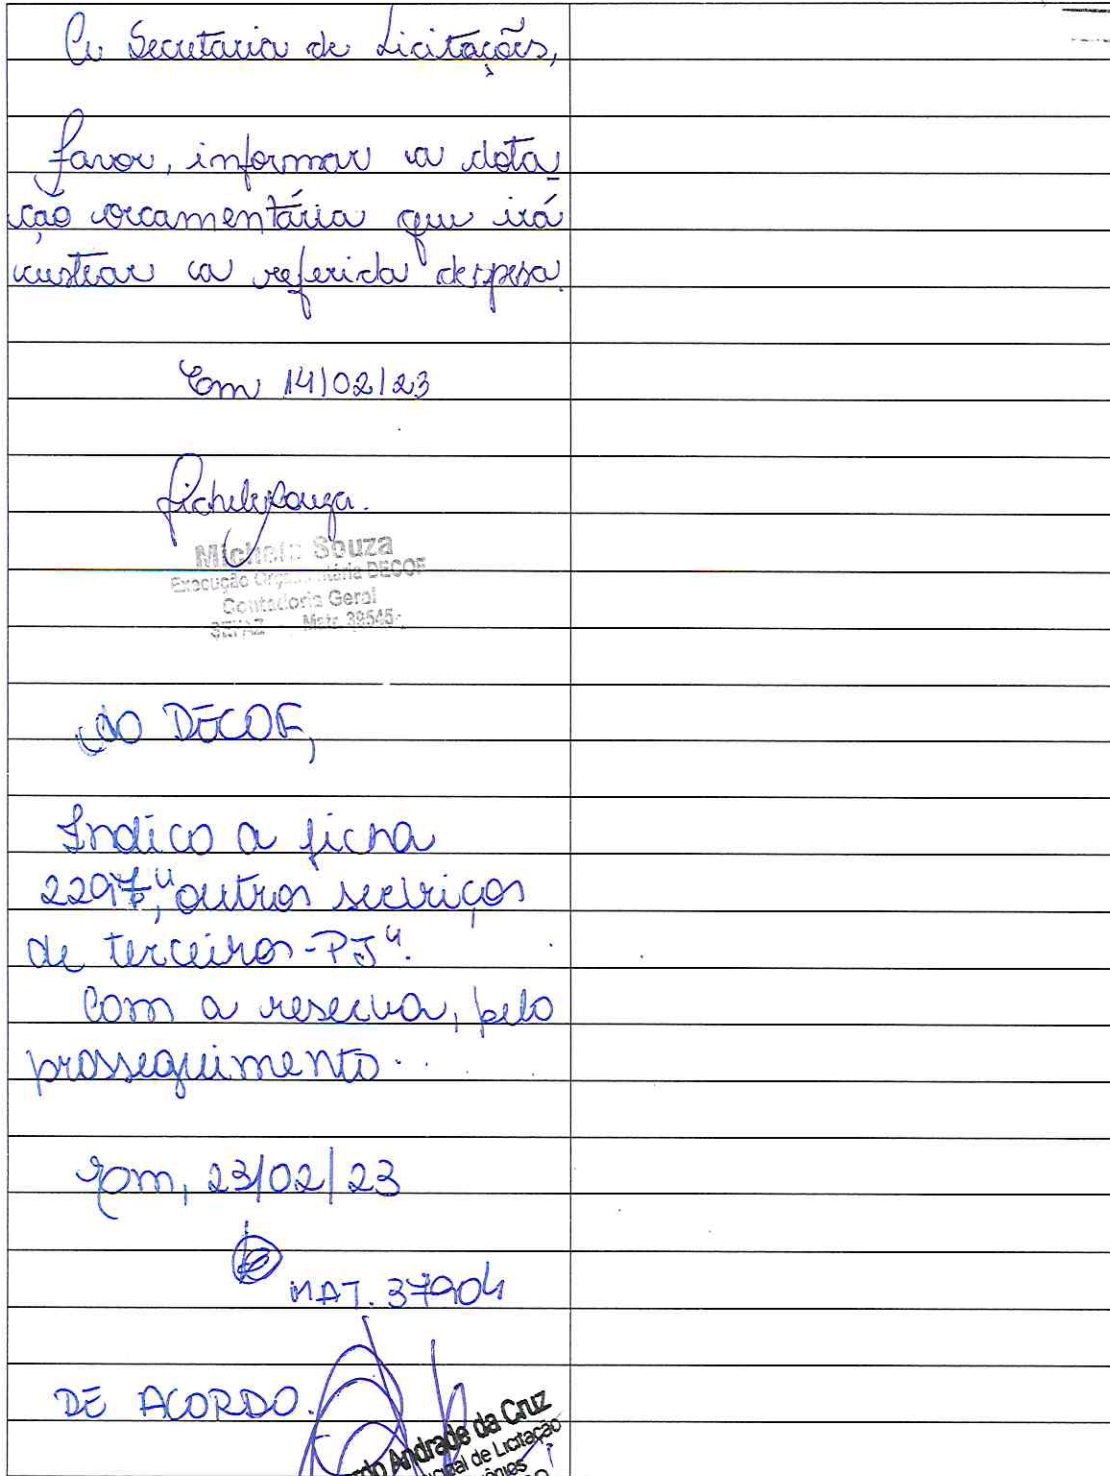 A Secretaria de Licitações,
favor, informar a dota
ção orçamentária que irá
custear a referida despesa.
Em 14/02/23
Michele Souza.
Michele Souza
Execução Orçamentária DECOF
Contadoria Geral
SEFAZ Matr. 39545-
Ao DECOF,
Indico a ficha
2297, "outros serviços
de terceiros-PJ".
Com a reserva, pelo
prosseguimento.
Em, 23/02/23
MAT. 37904
DE ACORDO.
Andrade da Cruz
de Licitação